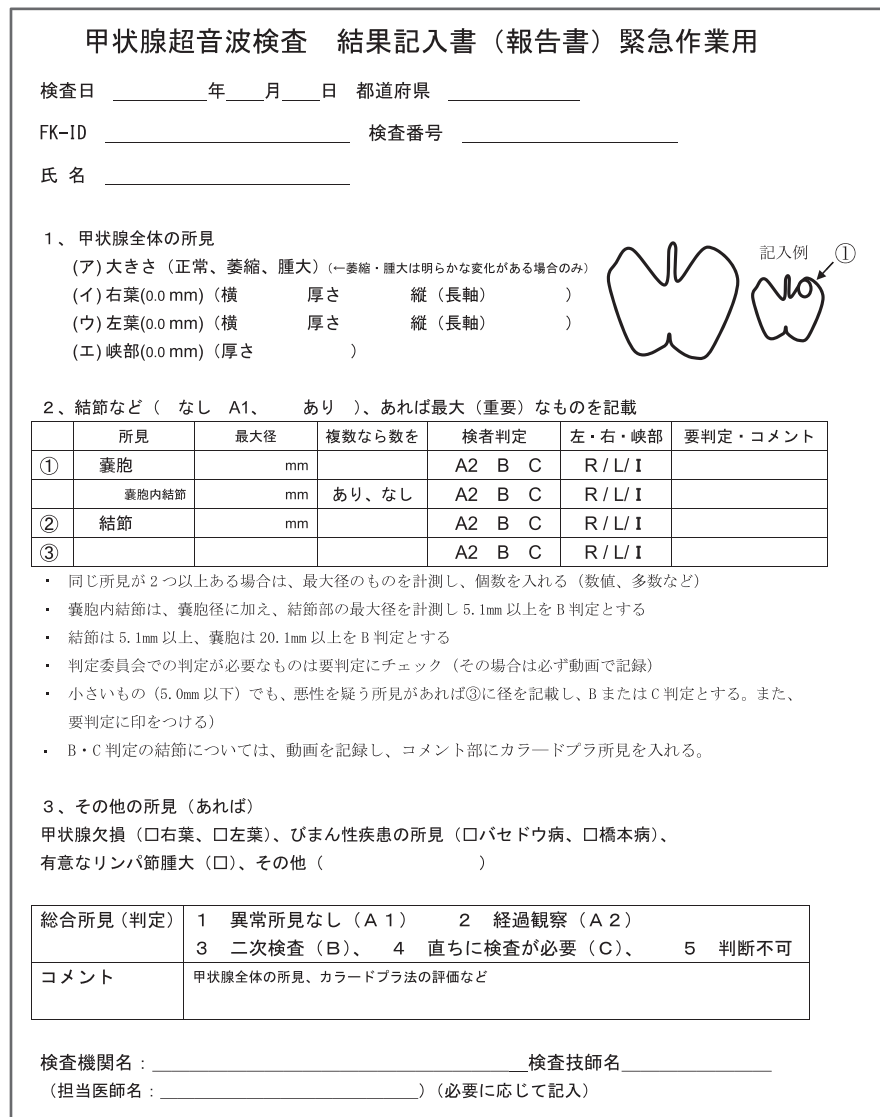 甲状腺超音波検査　結果記入書（報告書）緊急作業用
検査日　年　月　日　都道府県
FK-ID　検査番号
氏 名
１、 甲状腺全体の所見
(ア) 大きさ（正常、萎縮、腫大）（←萎縮・腫大は明らかな変化がある場合のみ）
(イ) 右葉(0.0 mm)（横　厚さ　縦（長軸）　）
(ウ) 左葉(0.0 mm)（横　厚さ　縦（長軸）　）
(エ) 峡部(0.0 mm)（厚さ　）
記入例　①
２、結節など（　なし　A1、　あり　）、あれば最大（重要）なものを記載
所見　最大径　複数なら数を　検者判定　左・右・峡部　要判定・コメント
①　嚢胞　mm　A2　B　C　R / L/ I
嚢胞内結節　mm　あり、なし　A2　B　C　R / L/ I
②　結節　mm　A2　B　C　R / L/ I
③　A2　B　C　R / L/ I
・ 同じ所見が 2 つ以上ある場合は、最大径のものを計測し、個数を入れる（数値、多数など）
・ 嚢胞内結節は、嚢胞径に加え、結節部の最大径を計測し 5.1mm 以上を B 判定とする
・ 結節は 5.1mm 以上、嚢胞は 20.1mm 以上を B 判定とする
・ 判定委員会での判定が必要なものは要判定にチェック（その場合は必ず動画で記録）
・ 小さいもの（5.0mm 以下）でも、悪性を疑う所見があれば③に径を記載し、B または C 判定とする。また、
要判定に印をつける）
・ B・C 判定の結節については、動画を記録し、コメント部にカラ―ドプラ所見を入れる。
３、その他の所見（あれば）
甲状腺欠損（□右葉、□左葉）、びまん性疾患の所見（□バセドウ病、□橋本病）、
有意なリンパ節腫大（□）、その他（　）
総合所見（判定）　１　異常所見なし（Ａ１）　２　経過観察（Ａ２）
３　二次検査（Ｂ）、　４　直ちに検査が必要（Ｃ）、　５　判断不可
コメント　甲状腺全体の所見、カラードプラ法の評価など
検査機関名：　検査技師名
（担当医師名：　）（必要に応じて記入）